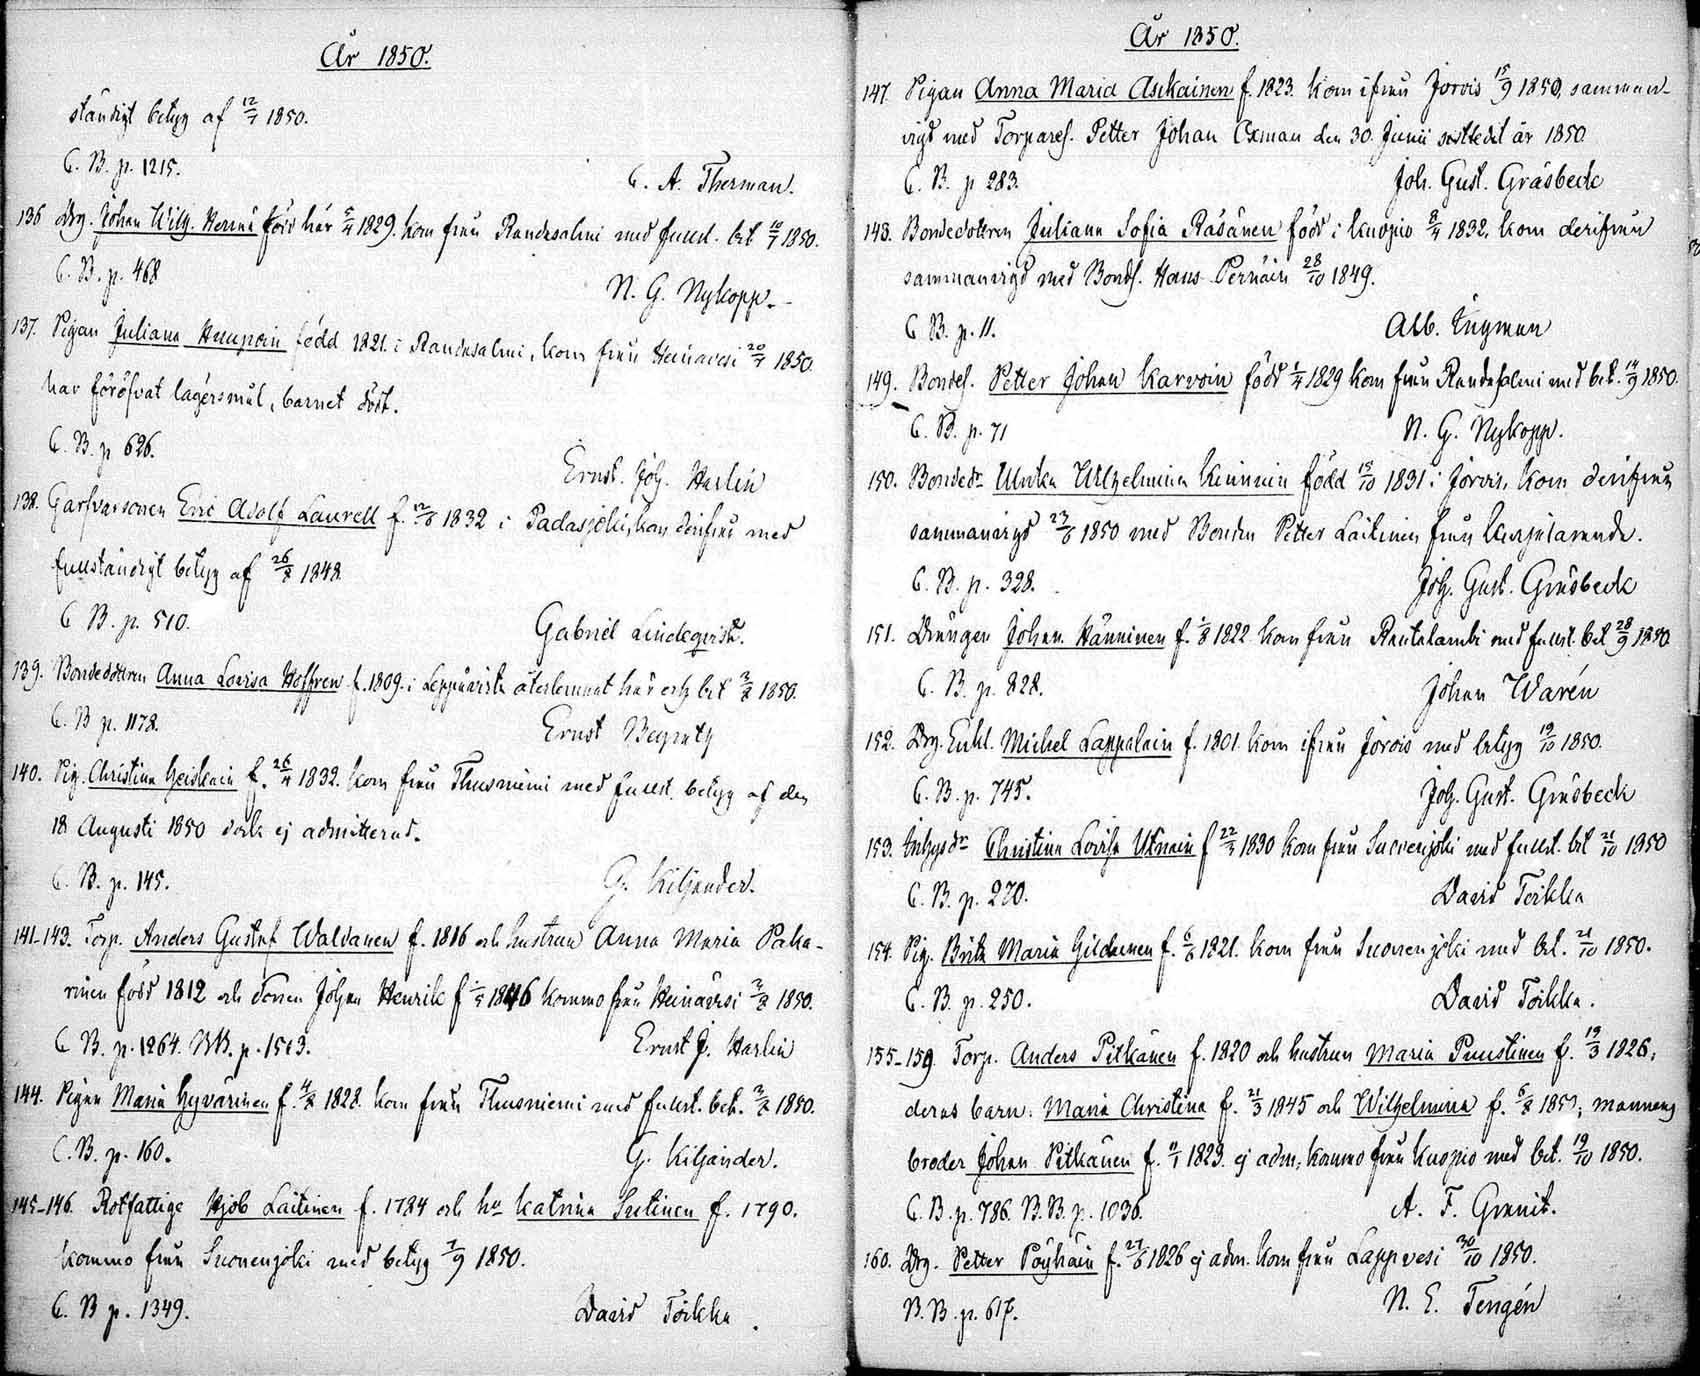 År 1850.
ständigt betyg af 12/7 1850.
C. B. p. 1215.
C. A. Therman.
136 Drg. Johan Wilh. född här 5/4 1829. kom från Randasalmi med fullst. bet 1850.
C. B. p. 468
N. G. Nykopp.
137. Pigan Juliana född 1821. i Randasalmi, kom från Heinävesi 20/7 1850.
har föröfvat lägersmål, barnet dödt.
C. B. p 626.
Ernst. Joh. Harlin
138. Garfvarsonen Eric Adolf Laurell f. 12/8 1832 i Padasjöki, kom derifrån med
fullständigt betyg af 26/8 1848.
C B. p. 510.
Gabriel Lindeqvist.
139. Bondedottren Anna Lovisa Hoffren f. 1809. i Leppävirta återlemnat här och bet 2/8 1850.
C. B p. 1178.
Ernst
140. Pig. Christina Heiskain f. 26/4 1832. kom från Thusniemi med fullst. betyg af den
18 Augusti 1850 dock ej admitterad.
C. B. p. 145.
G. Kiljander.
141-143. Torp. Anders Gustaf Waldanen f. 1816 och hustrun Anna Maria Paka-
rinen född 1812 och sonen Johan Henrik f 1846 kommo från Heinävesi 2/8 1850.
C B. p. 1264. BB. p. 1513.
Ernst J. Harlin
144. Pigan Maria Hyvärinen f. 4/8 1828. kom från Thusniemi med fullst. bet. 2/8 1850.
C. B. p. 160.
G. Kiljander.
145-146. Rotfattige Hjob Laitinen f. 1784 och hu Katrina Sutinen f. 1790.
kommo från Suonenjoki med betyg 7/9 1850.
C. B p. 1349.
David Toikka.
År 1850.
147. Pigan Anna Maria Asikainen f. 1823. kom ifrån Jorois 15/9 1850, samman-
vigd med Torparef. Petter Johan Oxman den 30. Junii år 1850
C. B. p 283.
Joh. Gust. Gråsbeck
148. Bondedottren Juliana Sofia Räsänen född i Kuopio 1832. kom derifrån
sammanvigd med Bondf. Hans Pernäin 28/10 1849.
C B. p. 11.
Alb. Ingman
149. Bondef. Petter Johan Karvoin född 1829 kom från Randasalmi med bet. 14/9 1850.
C. B. p. 71
N. G. Nykopp.
150. Bonded:r Ulrika Wilhelmina Keinäin född 15/10 1831 i Jorois, kom derifrån
sammanvigd 23/6 1850 med Bonden Petter Laitinen från
C. B. p. 328.
Joh. Gust. Gråsbeck
151. Drängen Johan Hänninen f. 1/8 1822 kom från Rautalambi med fullst. bet 28/9 1850
C. B. p. 828.
Johan Warén
152. Drg. Enkl. Michel Lappalain f. 1801 kom ifrån Jorois med betyg 19/10 1850.
C. B. p. 745.
Joh. Gust. Gråsbeck
153. Inhysdr Christina Lovisa f 22/3 1830 kom från Suonenjoki med fullst. bet 21/10 1850
C. B. p. 270.
David Toikka
154. Pig. Brita Maria f. 6/6 1821. kom från Suonenjoki med bet. 21/10 1850.
C. B. p. 250.
David Toikka.
155-159. Torp. Anders Pitkänen f. 1820 och hustrun Maria Puustinen f. 19/3 1826,
deras barn: Maria Christina f. 21/3 1845 och Wilhelmina f. 6/8 1850; mannens
broder Johan Pitkänen f. 11/1 1829. ej adm, kommo från Kuopio med bet. 19/10 1850.
C. B. p. 786. B. B. p. 1036.
A. F. Granit.
160. Drg. Petter Pöyhäin f. 27/6 1826 ej adm. kom från Lappvesi 30/10 1850.
B. B. p. 617.
N. E. Tengén